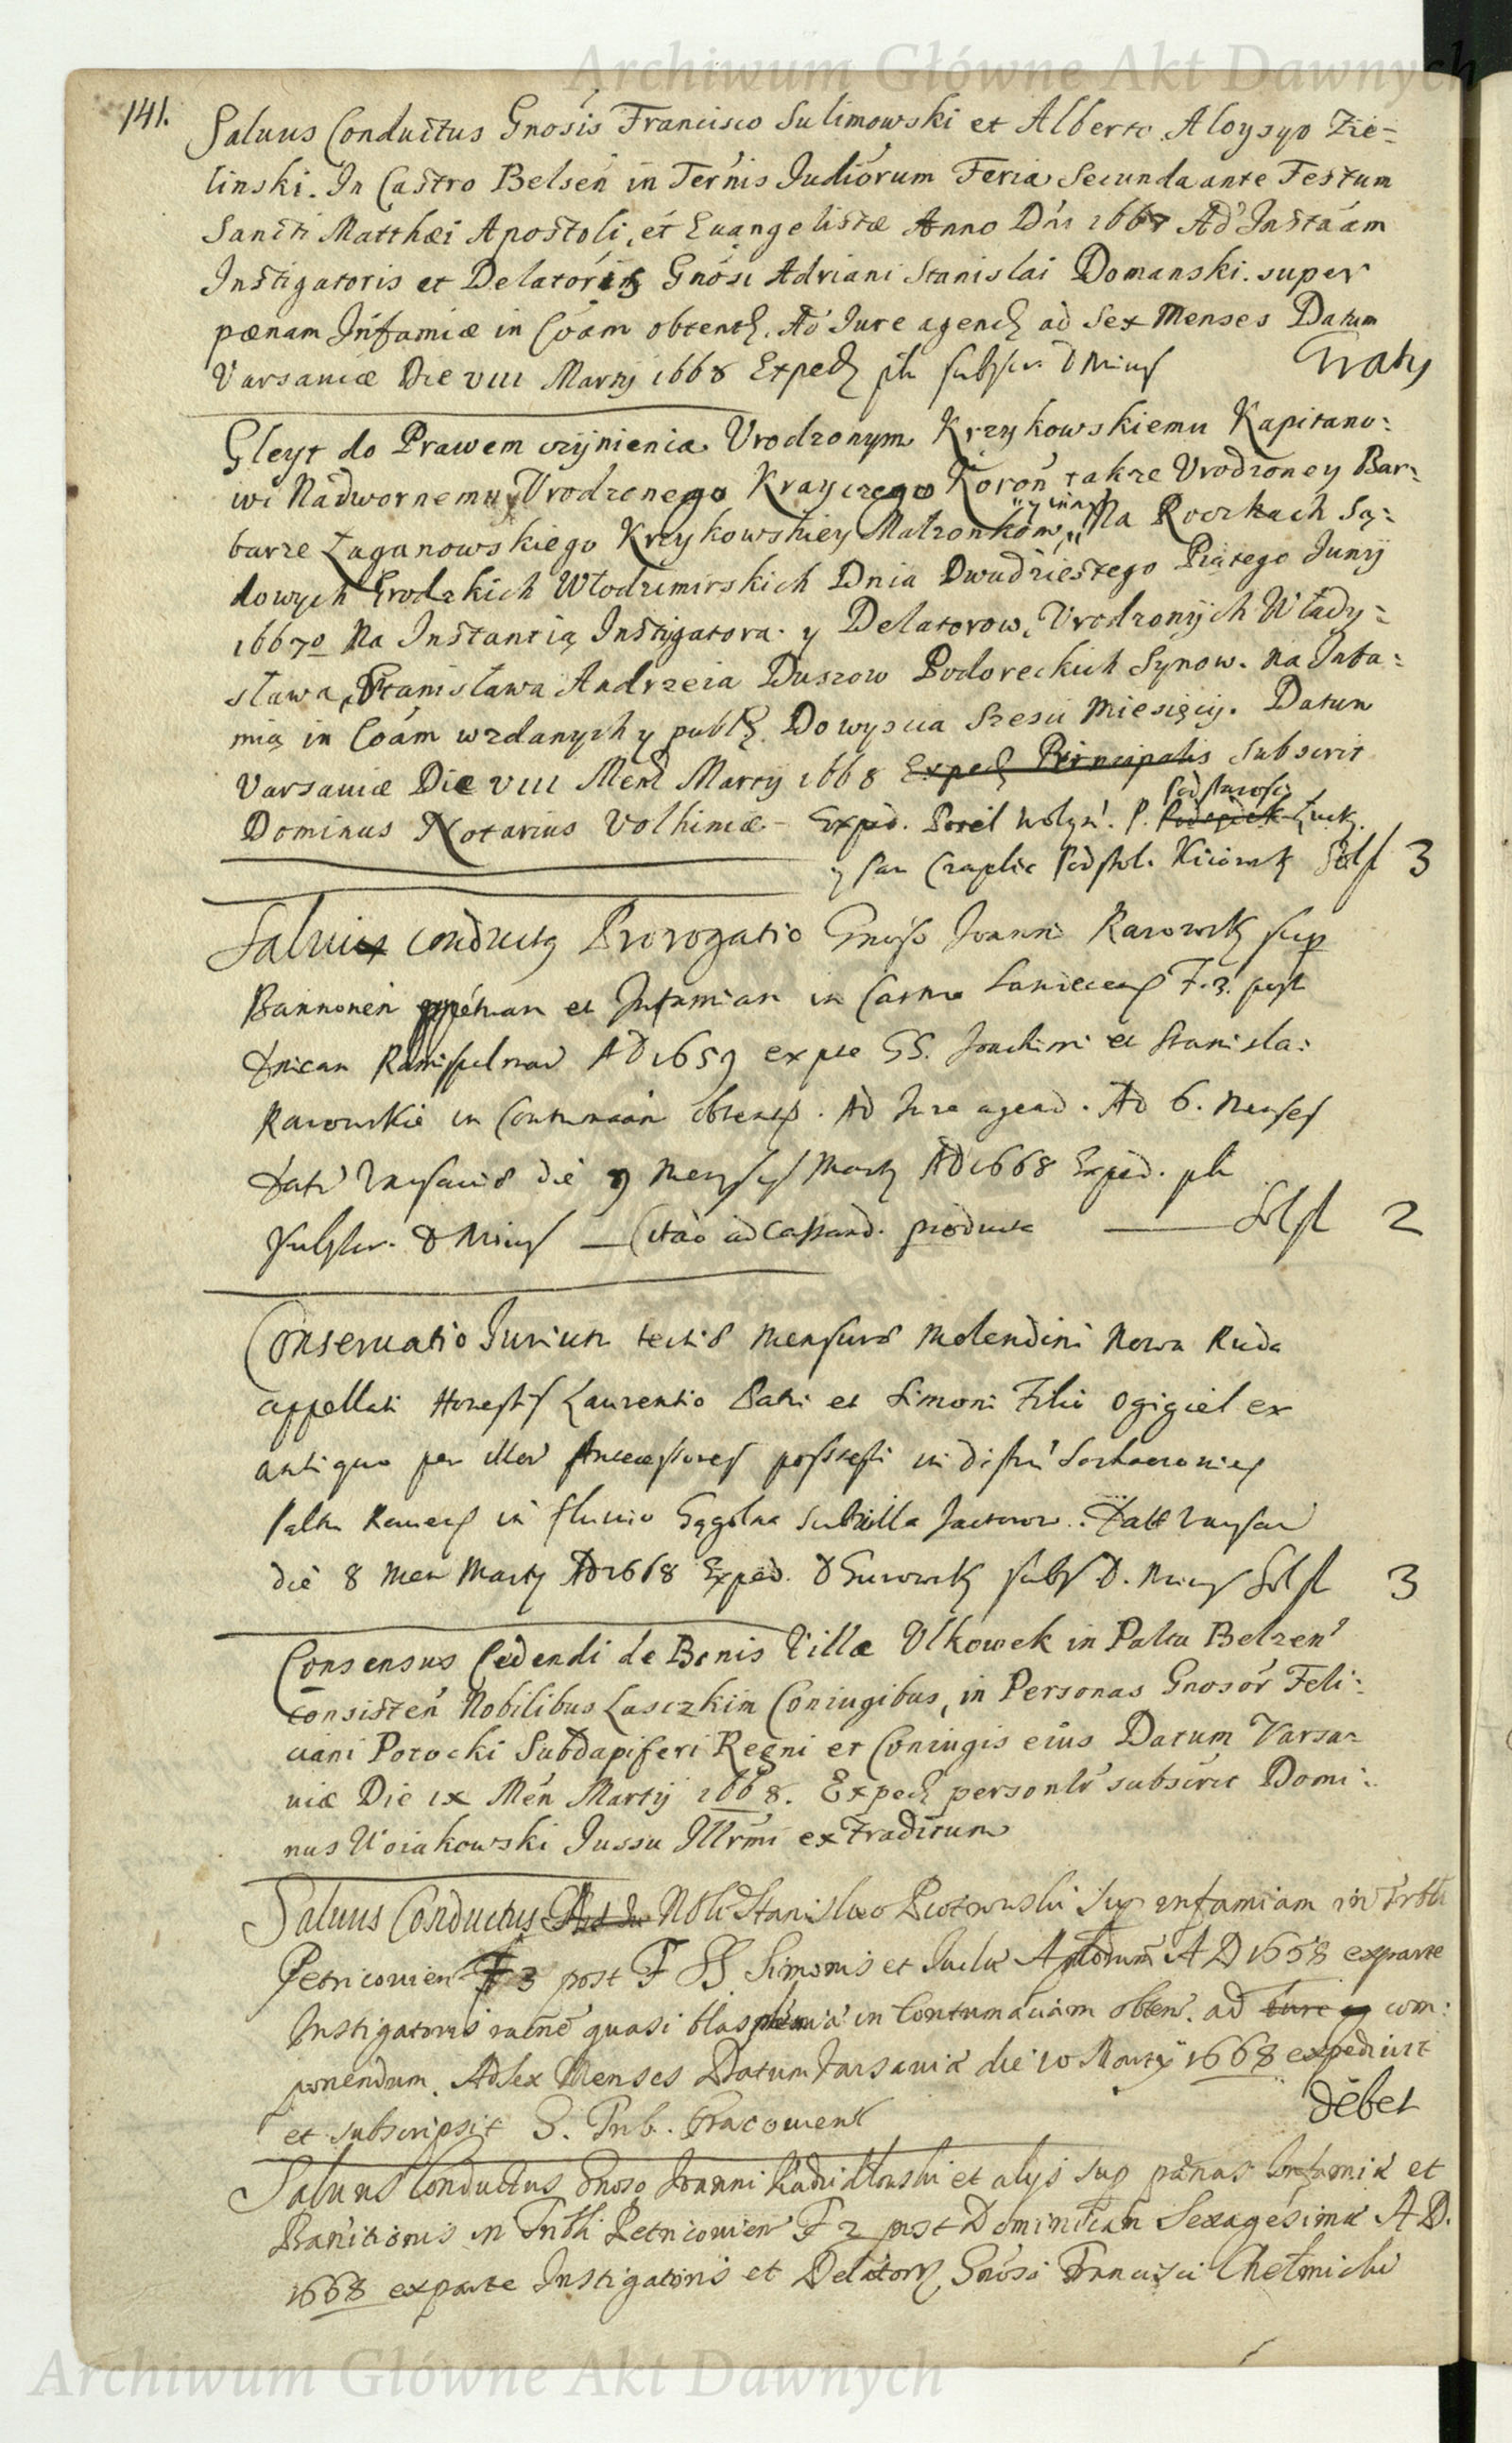 Archiwum Główne Akt Dawnych
141.
Saluus Conductus Gnosis Francisco Sulimowski et Alberto Aloysyo Zie=
linski. In Castro Belsen in Ternis Iudiorum Feria Secunda ante Festum
Sancti Matthæi Apostoli, et Euangelistæ Anno Dni 1667 Ad Instãam
Instigatoris et Delatoris Gnosi Adriani Stanislai Domanski. super
pœnam Infamiæ in Coam obtent. Ad Iure agend ad Sex Menses Datum
Varsauiæ Die VIII Martij 1668 Exped ph subscr. D Minus Gratis
Gleyt do Prawem czÿnienia Vrodzonym Krzykowskiemu Kapitano:
wi Nadwornemu Vrodzonego Krayczego Koron takze Vrodzoney Bar:
barze Łaganowskiego Krzykowskiey Małzonkow, y innÿ Na Roczkach Są:
dowych Grodzkich Włodzimirskich Dnia Dwudziestego Piątego Junÿ
1667º Na Instantią Instigatora. y Delatorow, Vrodzonÿch Włady:
sława, Stanisława Andrzeia Duszow Podoreckich Synow. na Infa:
mią in Coam wzdanych y publ. Do wyscia Szesci Miesięcy. Datum
Varsauiæ Die VIII Mens Martij 1668 Exped Principalis Subscrit
Dominus Notarius Volhiniæ - Exped. Posel Wolyn. P. Podstarosci Łuck.
y Pan Czaplic Podstol. Kiiowsk Solf 3
Salui Conductus Prorogatio Gnoso Joanni Rasowsk sup
Bannonen ppetuam et Infamiam in Castro Lanicens F. 3. post
Dnicam Ramispalmar AD 1659 ex pte GG. Joachimi et Stanisla:
Rasowskie in Contumaam obtent. Ad Iure agend. Ad 6. Menses
Dat Varsauiæ die 9 Mensis Martij AD 1668 Exped. ph
subscr. D Minus — Citao ad Cassand. producta — Solf 2
Conseruatio Iurium tertiæ Mensuræ Molendini Nowa Ruda
appellati Honestis Laurentio Patri et Simoni Filio Ogigiel ex
antiquo per illor Antecessores possessi in districtu Sochaczouien
Paltu Rauen in fluuio Gągolna sub Villa Jactorow. Datt Varsau
die 8 Men Martij AD 1668 Exped. D Gurowsk subs D. Minus Solf 3
Consensus Cedendi de Bonis Villæ Vlkowek in Paltu Belzen
consisten Nobilibus Lasczkim Coniugibus, in Personas Gnosor Feli:
ciani Potocki Subdapiferi Regni et Coniugis eius Datum Varsa=
uiæ Die IX Men Martij 1668. Exped personlr subscrit Domi:
nus Woiakowski Iussu Illrmi extraditum
Saluus Conductus Nobli Stanislao Piotrowski sup infamiam in Trbli
Petricouien F 3 post F SS Simonis et Iudæ Aplorum A D 1658 exparte
Instigatoris raone quasi blasphemiæ in Contumaciam obten. ad Iure ag com:
ponendum. Ad Sex Menses Datum Varsauiæ die 10 Martij 1668 expediuit
et subscripsit S. Trib. Cracouiens debet
Saluus Conductus Gnoso Joanni Radziatkowski et alijs sup pænas Infamiæ et
Banitionis in Trbli Petricouien F 2 post Dominicam Sexagesimæ A D.
1668 exparte Instigatoris et Delatoris Gnosi Francisci Chełmicki
Archiwum Główne Akt Dawnych